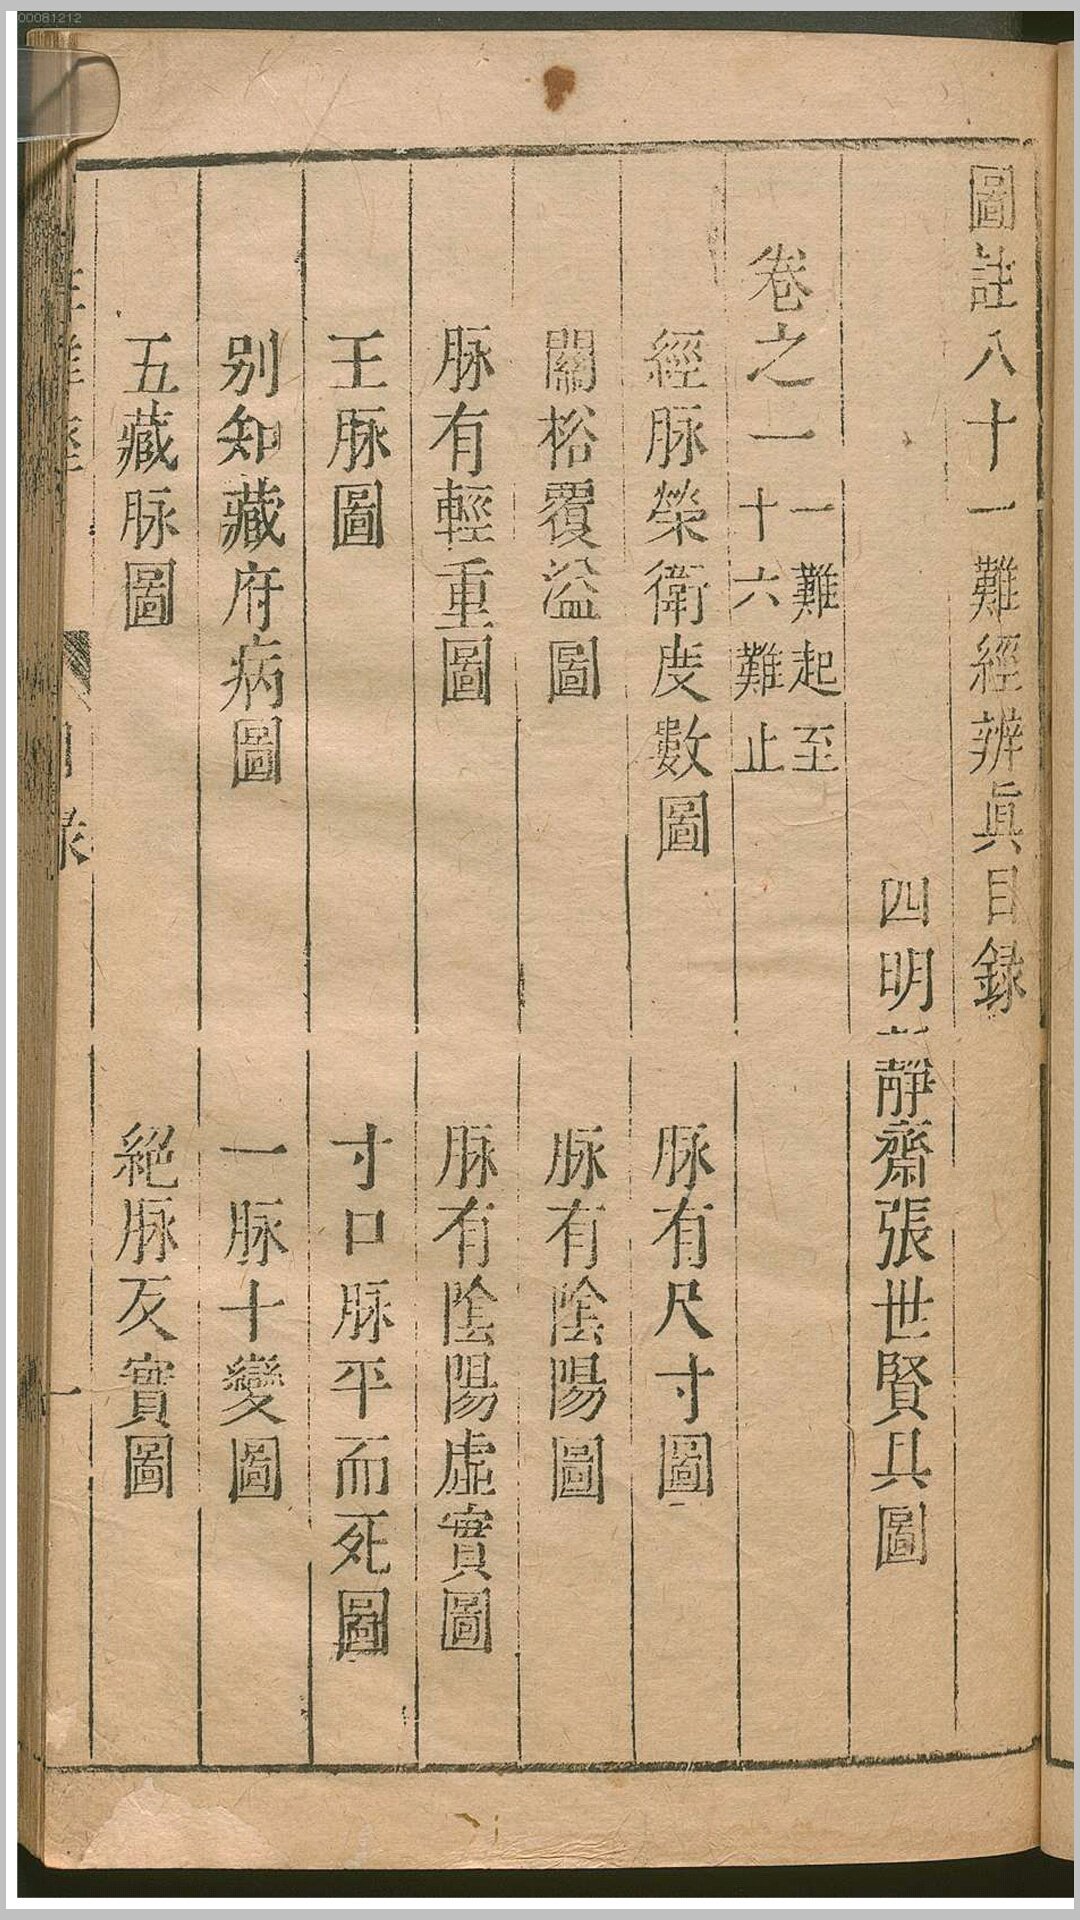 00081212
圖註八十一難經辨眞目録
四明靜齋張世賢具圖
卷之一
一難起至
十六難止
經脉榮衛度數圖
脉有尺寸圖
關格覆溢圖
脉有陰陽圖
脉有輕重圖
脉有陰陽虛實圖
王脉圖
寸口脉平而死圖
别知藏府病圖
一脉十變圖
五藏脉圖
絕脉反實圖
目録
一